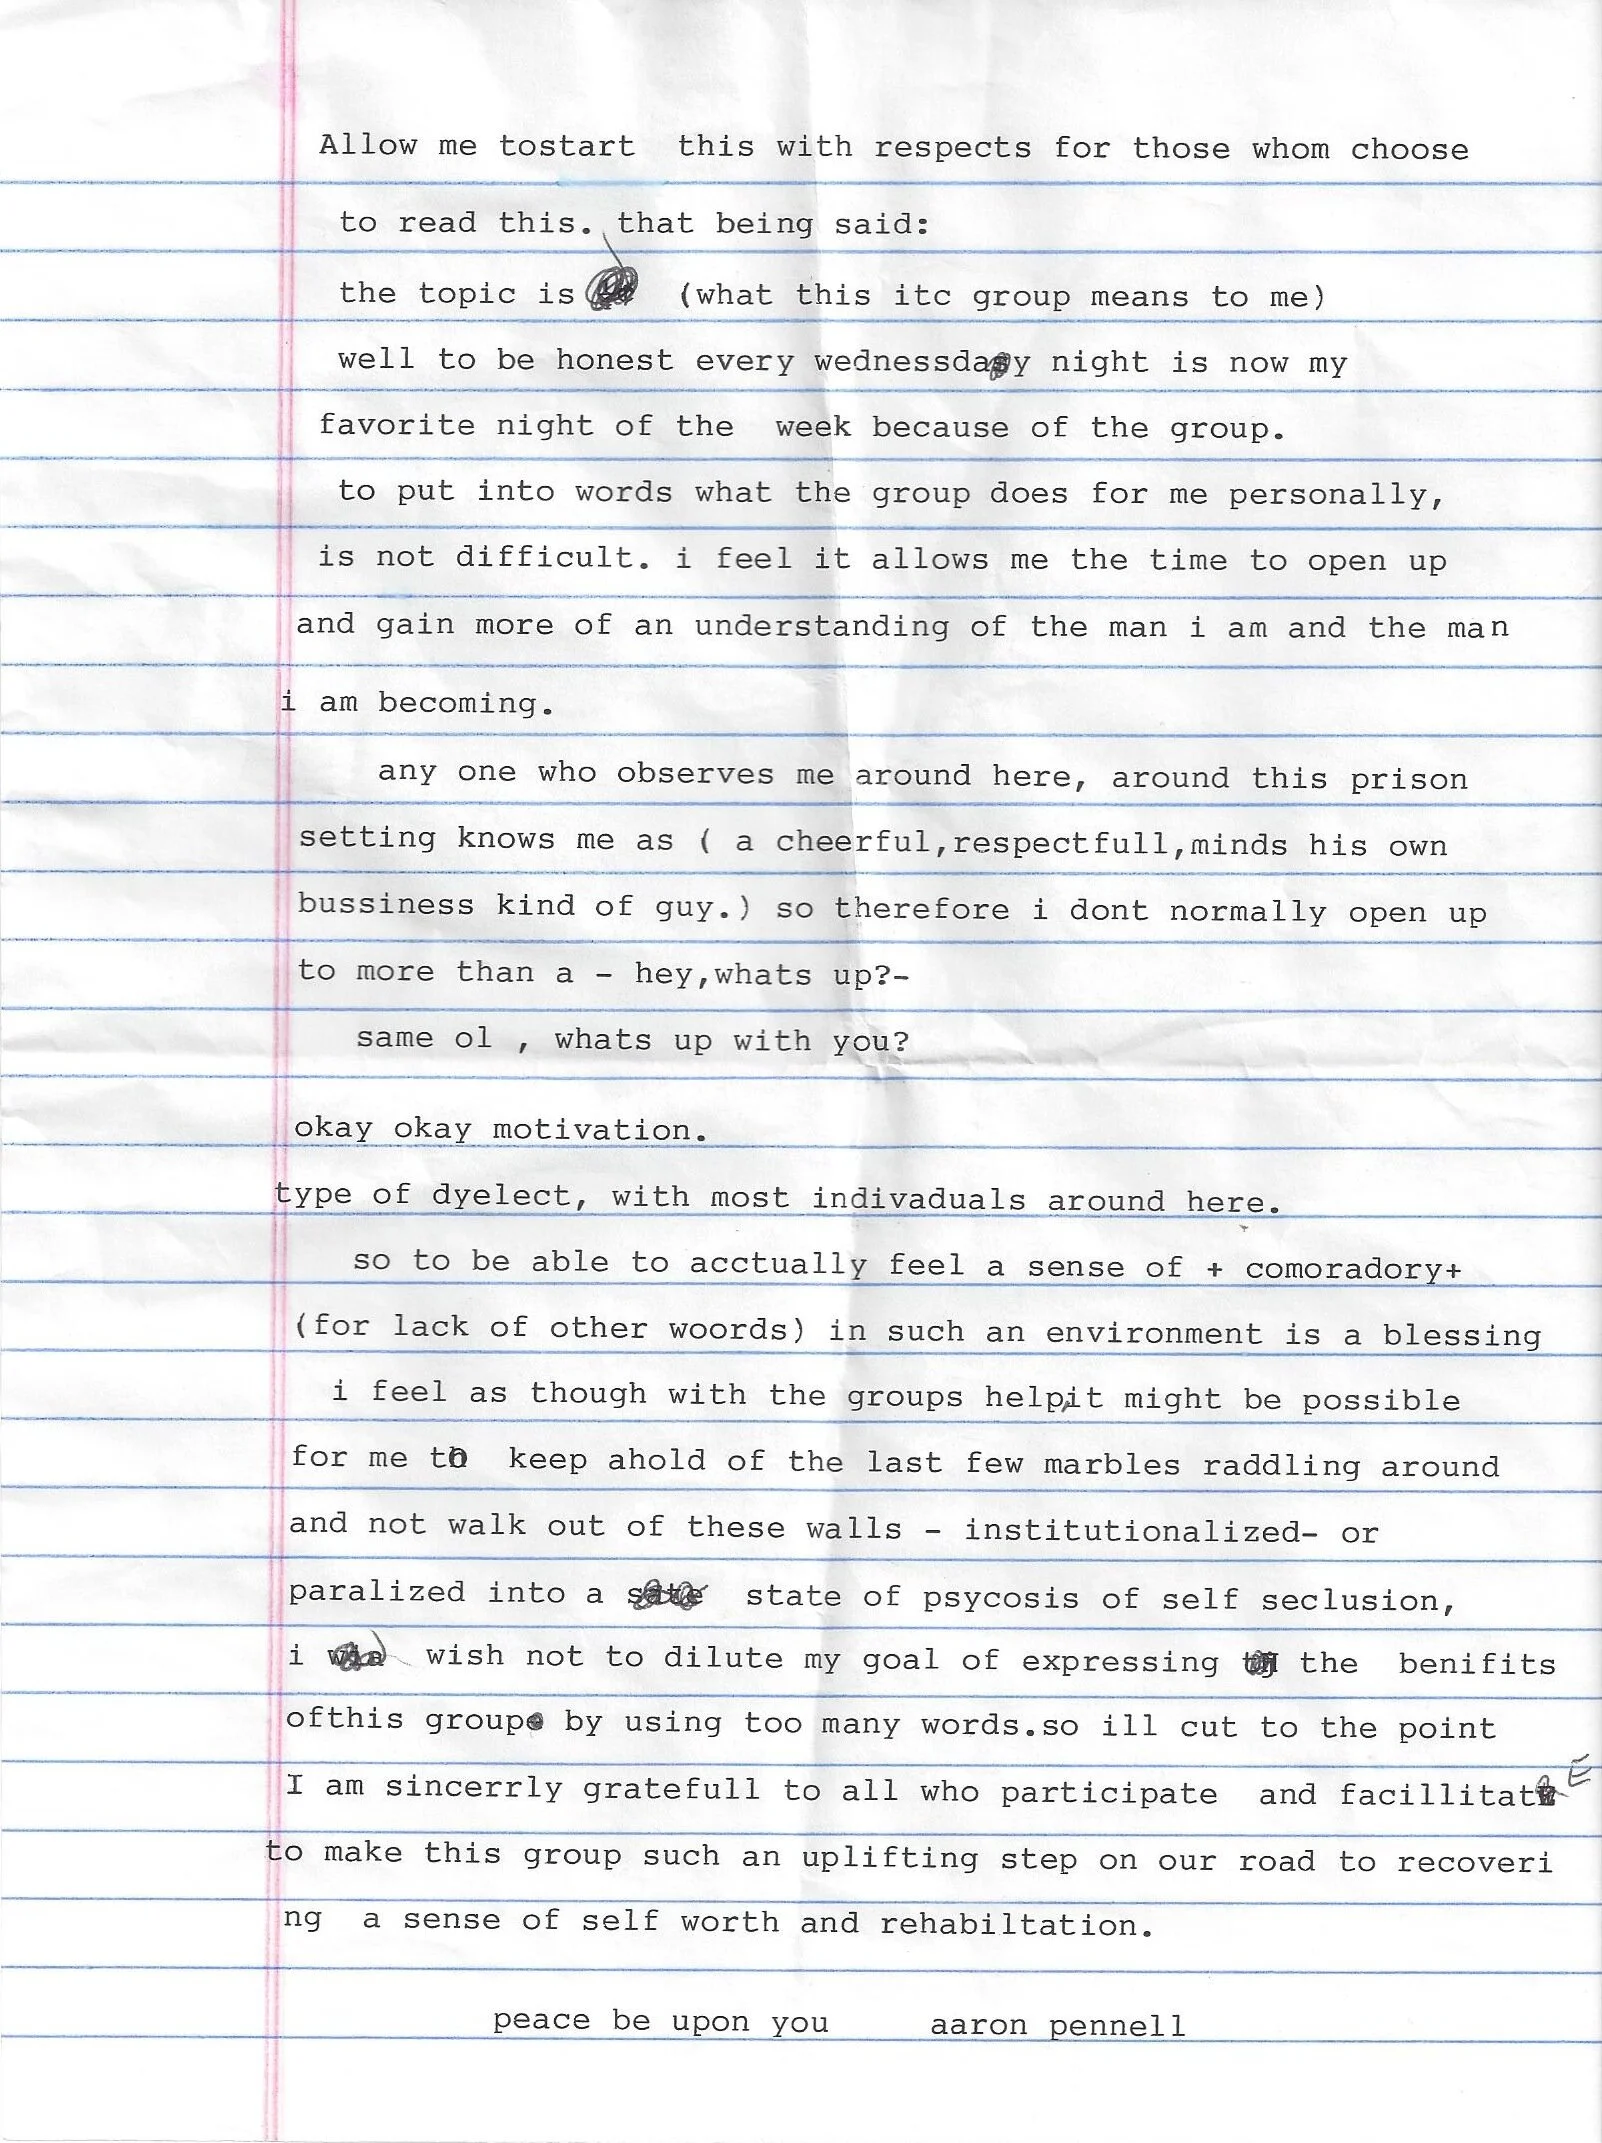 Allow me tostart this with respects for those whom choose
to read this. that being said:
the topic is (what this itc group means to me)
well to be honest every wednessday night is now my
favorite night of the week because of the group.
to put into words what the group does for me personally,
is not difficult. i feel it allows me the time to open up
and gain more of an understanding of the man i am and the man
i am becoming.
any one who observes me around here, around this prison
setting knows me as ( a cheerful,respectfull,minds his own
bussiness kind of guy.) so therefore i dont normally open up
to more than a - hey,whats up?-
same ol , whats up with you?
okay okay motivation.
type of dyelect, with most indivaduals around here.
so to be able to acctually feel a sense of + comoradory+
(for lack of other woords) in such an environment is a blessing
i feel as though with the groups help,it might be possible
for me to keep ahold of the last few marbles raddling around
and not walk out of these walls - institutionalized- or
paralized into a state of psycosis of self seclusion,
i wish not to dilute my goal of expressing the benifits
ofthis group by using too many words.so ill cut to the point
I am sincerrly gratefull to all who participate and facillitatE
to make this group such an uplifting step on our road to recoveri
ng a sense of self worth and rehabiltation.
peace be upon you aaron pennell